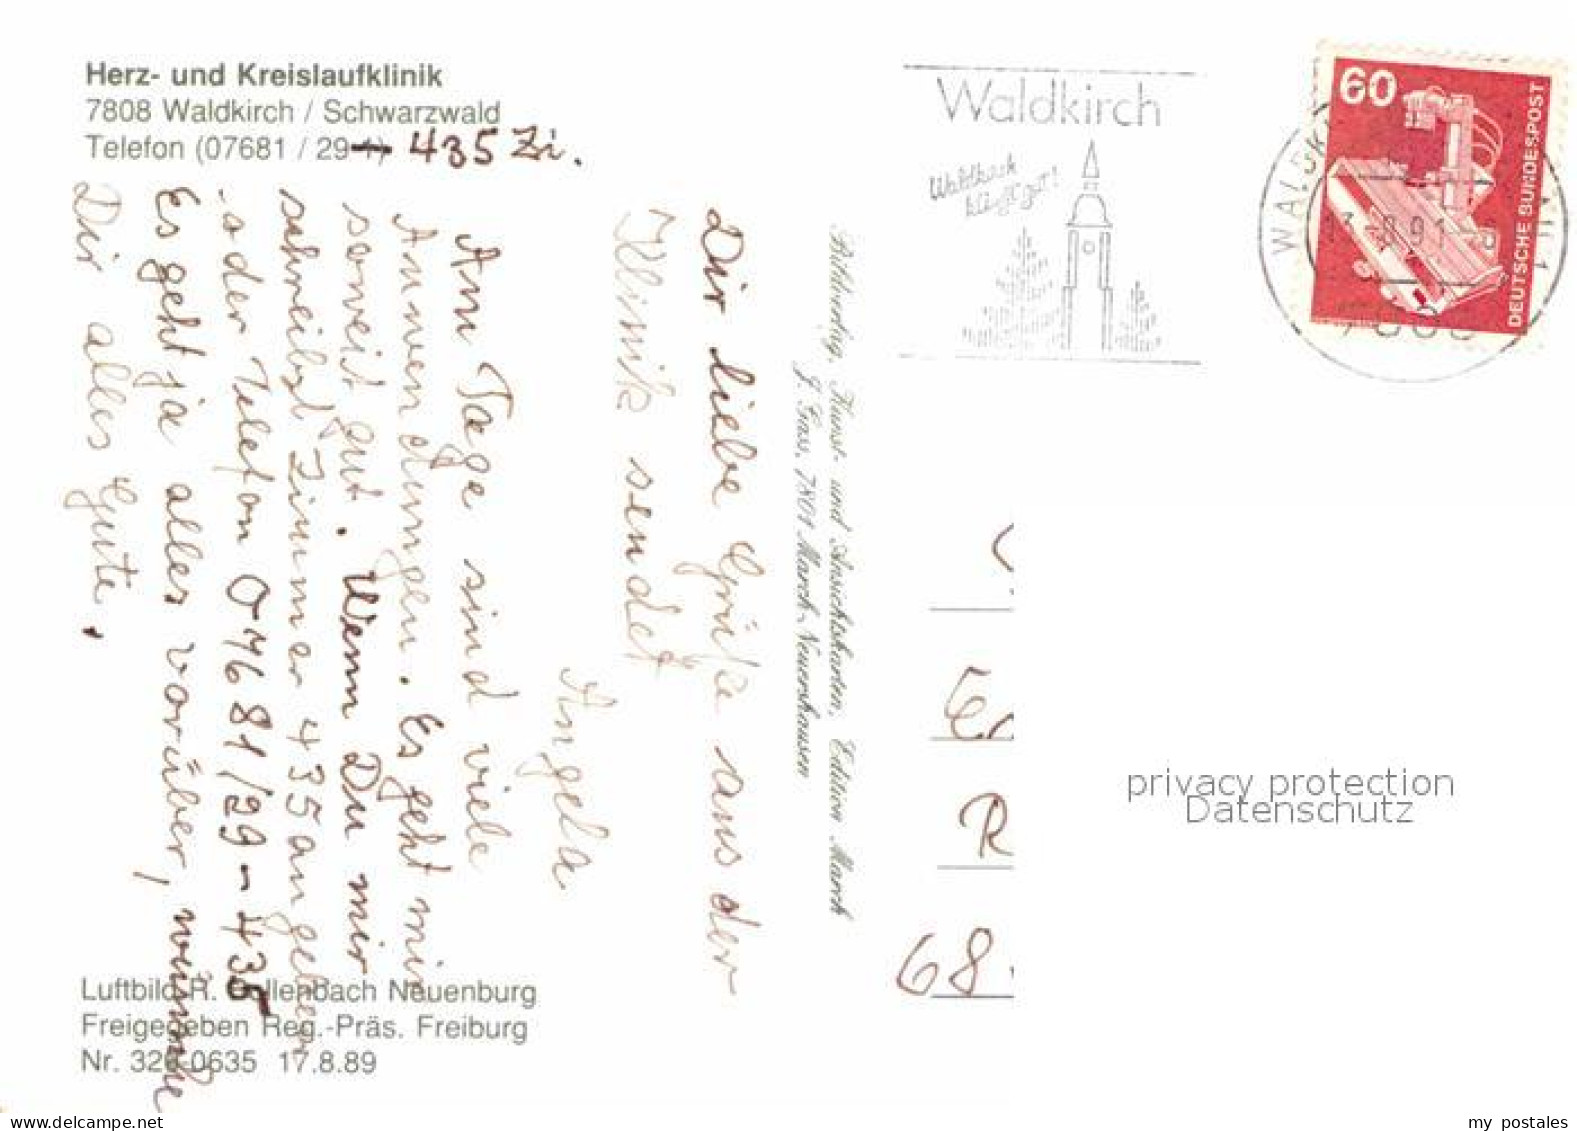 Herz- und Kreislaufklinik
7808 Waldkirch / Schwarzwald
Telefon (07681 / 29-1) 435 Zi.
Dir liebe Grüße aus der
Klinik sendet
Angela
Am Tage sind viele
Anwendungen. Es geht mir
soweit gut. Wenn Du mir
schreibst Zimmer 435 angeben
oder Telefon 07681/29-435
Es geht ja alles vorüber, wünsche
Dir alles Gute.
Bildverlag, Kunst- und Ansichtskarten, Edition March
J. Gass, 7801 March-Neuershausen
Luftbild R. Gellenbach Neuenburg
Freigegeben Reg.-Präs. Freiburg
Nr. 326-0635 17.8.89
Waldkirch
Waldkirch
klingt gut!
60
DEUTSCHE BUNDESPOST
R
68
privacy protection
Datenschutz
my postales